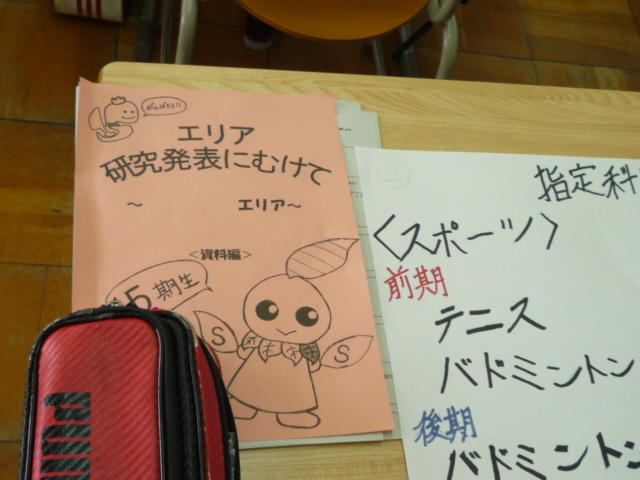 がんばろう!!
エリア
研究発表にむけて
～ エリア～
＜資料編＞
15期生
S
S
PUM
②
指定科
〈スポーツ〉
前期
テニス
バドミントン
後期
バドミントン